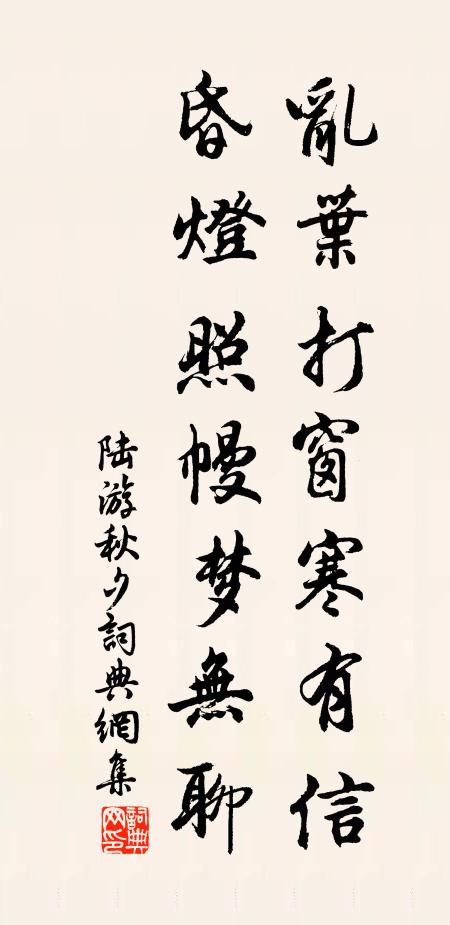 亂葉打窗寒有信
昏燈照幔梦無聊
陆游秋夕詞典網集
詞典网印